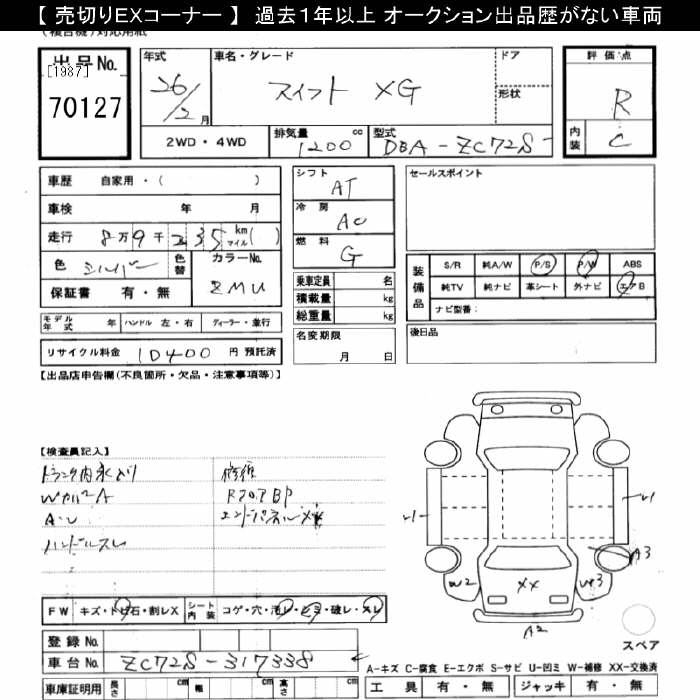 【 売切りEXコーナー 】 過去1年以上 オークション出品歴がない車両
出品No.
[1987]
70127
年式
26/2月
車名・グレード
スイフト XG
ドア
形状
評価点
R
内装
C
2WD・4WD
排気量
1200 cc
型式
DBA-ZC72S
車歴 自家用・( )
車検 年 月
走行 8万9千235 km マイル( )
色 シルバー
色替
カラーNo.
ZMU
保証書 有・無
モデル年式 年
ハンドル 左・右
ディーラー・並行
リサイクル料金 10400 円 預託済
シフト
AT
冷房
AC
燃料
G
乗車定員 名
積載量 kg
総重量 kg
名変期限
月 日
セールスポイント
装備品
S/R 純A/W P/S P/W ABS
純TV 純ナビ 革シート 外ナビ エアB
ナビ型番:
後日品
【出品店申告欄(不良箇所・欠品・注意事項等)】
【検査員記入】
A・U
ハンドルスレ
修復
エンドパネルXX
A3
W2
XX
A2
FW キズ・トビ石・割レX
シート内装 コゲ・穴・汚レ・ヒビ・破レ・スレ
登録No.
車台No. ZC72S-317338
車庫証明用 長さ cm 幅 cm 高さ cm
スペア
A-キズ C-腐食 E-エクボ S-サビ U-凹ミ W-補修 XX-交換済
工具 有・無 ジャッキ 有・無